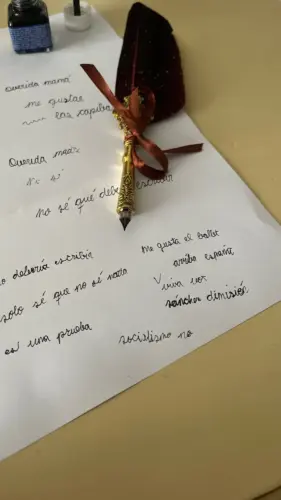 Querida mamá
me gustas
las capiba
Querida
no sé qué debe escribir
o debería escribir
solo sé que no sé nada
es una prueba
Me gusta el ballet
arriba españa
viva vox
sánchez dimisión
socialismo no